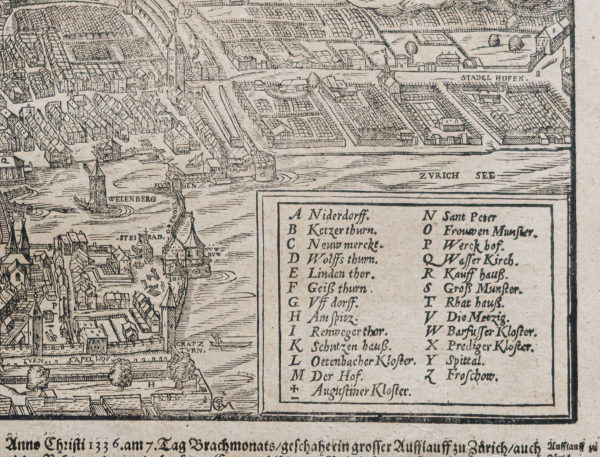 STADEL HOFEN.
ZVRICH SEE
WELENBERG
CAPEL HOF
KRATZ
TVRN.
A Niderdorff.
B Ketzerthurn.
C Neuwmerckt.
D Wolffs thurn.
E Linden thor.
F Geiß thurn.
G Vff dorff.
H Am spitz.
I Renwegerthor.
K Schutzen hauß.
L Oetenbacher Kloster.
M Der Hof.
Augustiner Kloster.
N Sant Peter
O Frouwen Munster.
P Werck hof.
Q Wasser Kirch.
R Kauff hauß.
S Groß Munster.
T Rhat hauß.
V Die Metzig.
W Barfusser Kloster.
X Prediger Kloster.
Y Spittal.
Z Froschow.
Anno Christi 1336. am 7. Tag Brachmonats/geschahe ein grosser Aufflauff zu Zürich/auch
Aufflauff zu